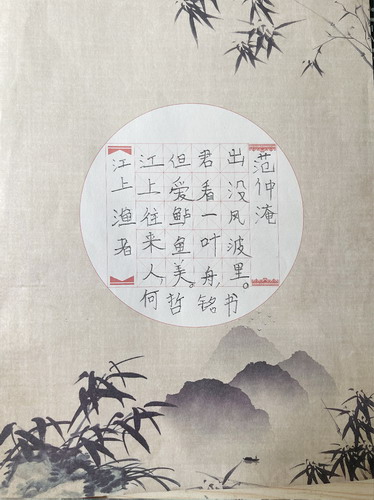 江上渔者
江上往来人,
但爱鲈鱼美。
君看一叶舟,
出没风波里。
范仲淹
何哲铭书